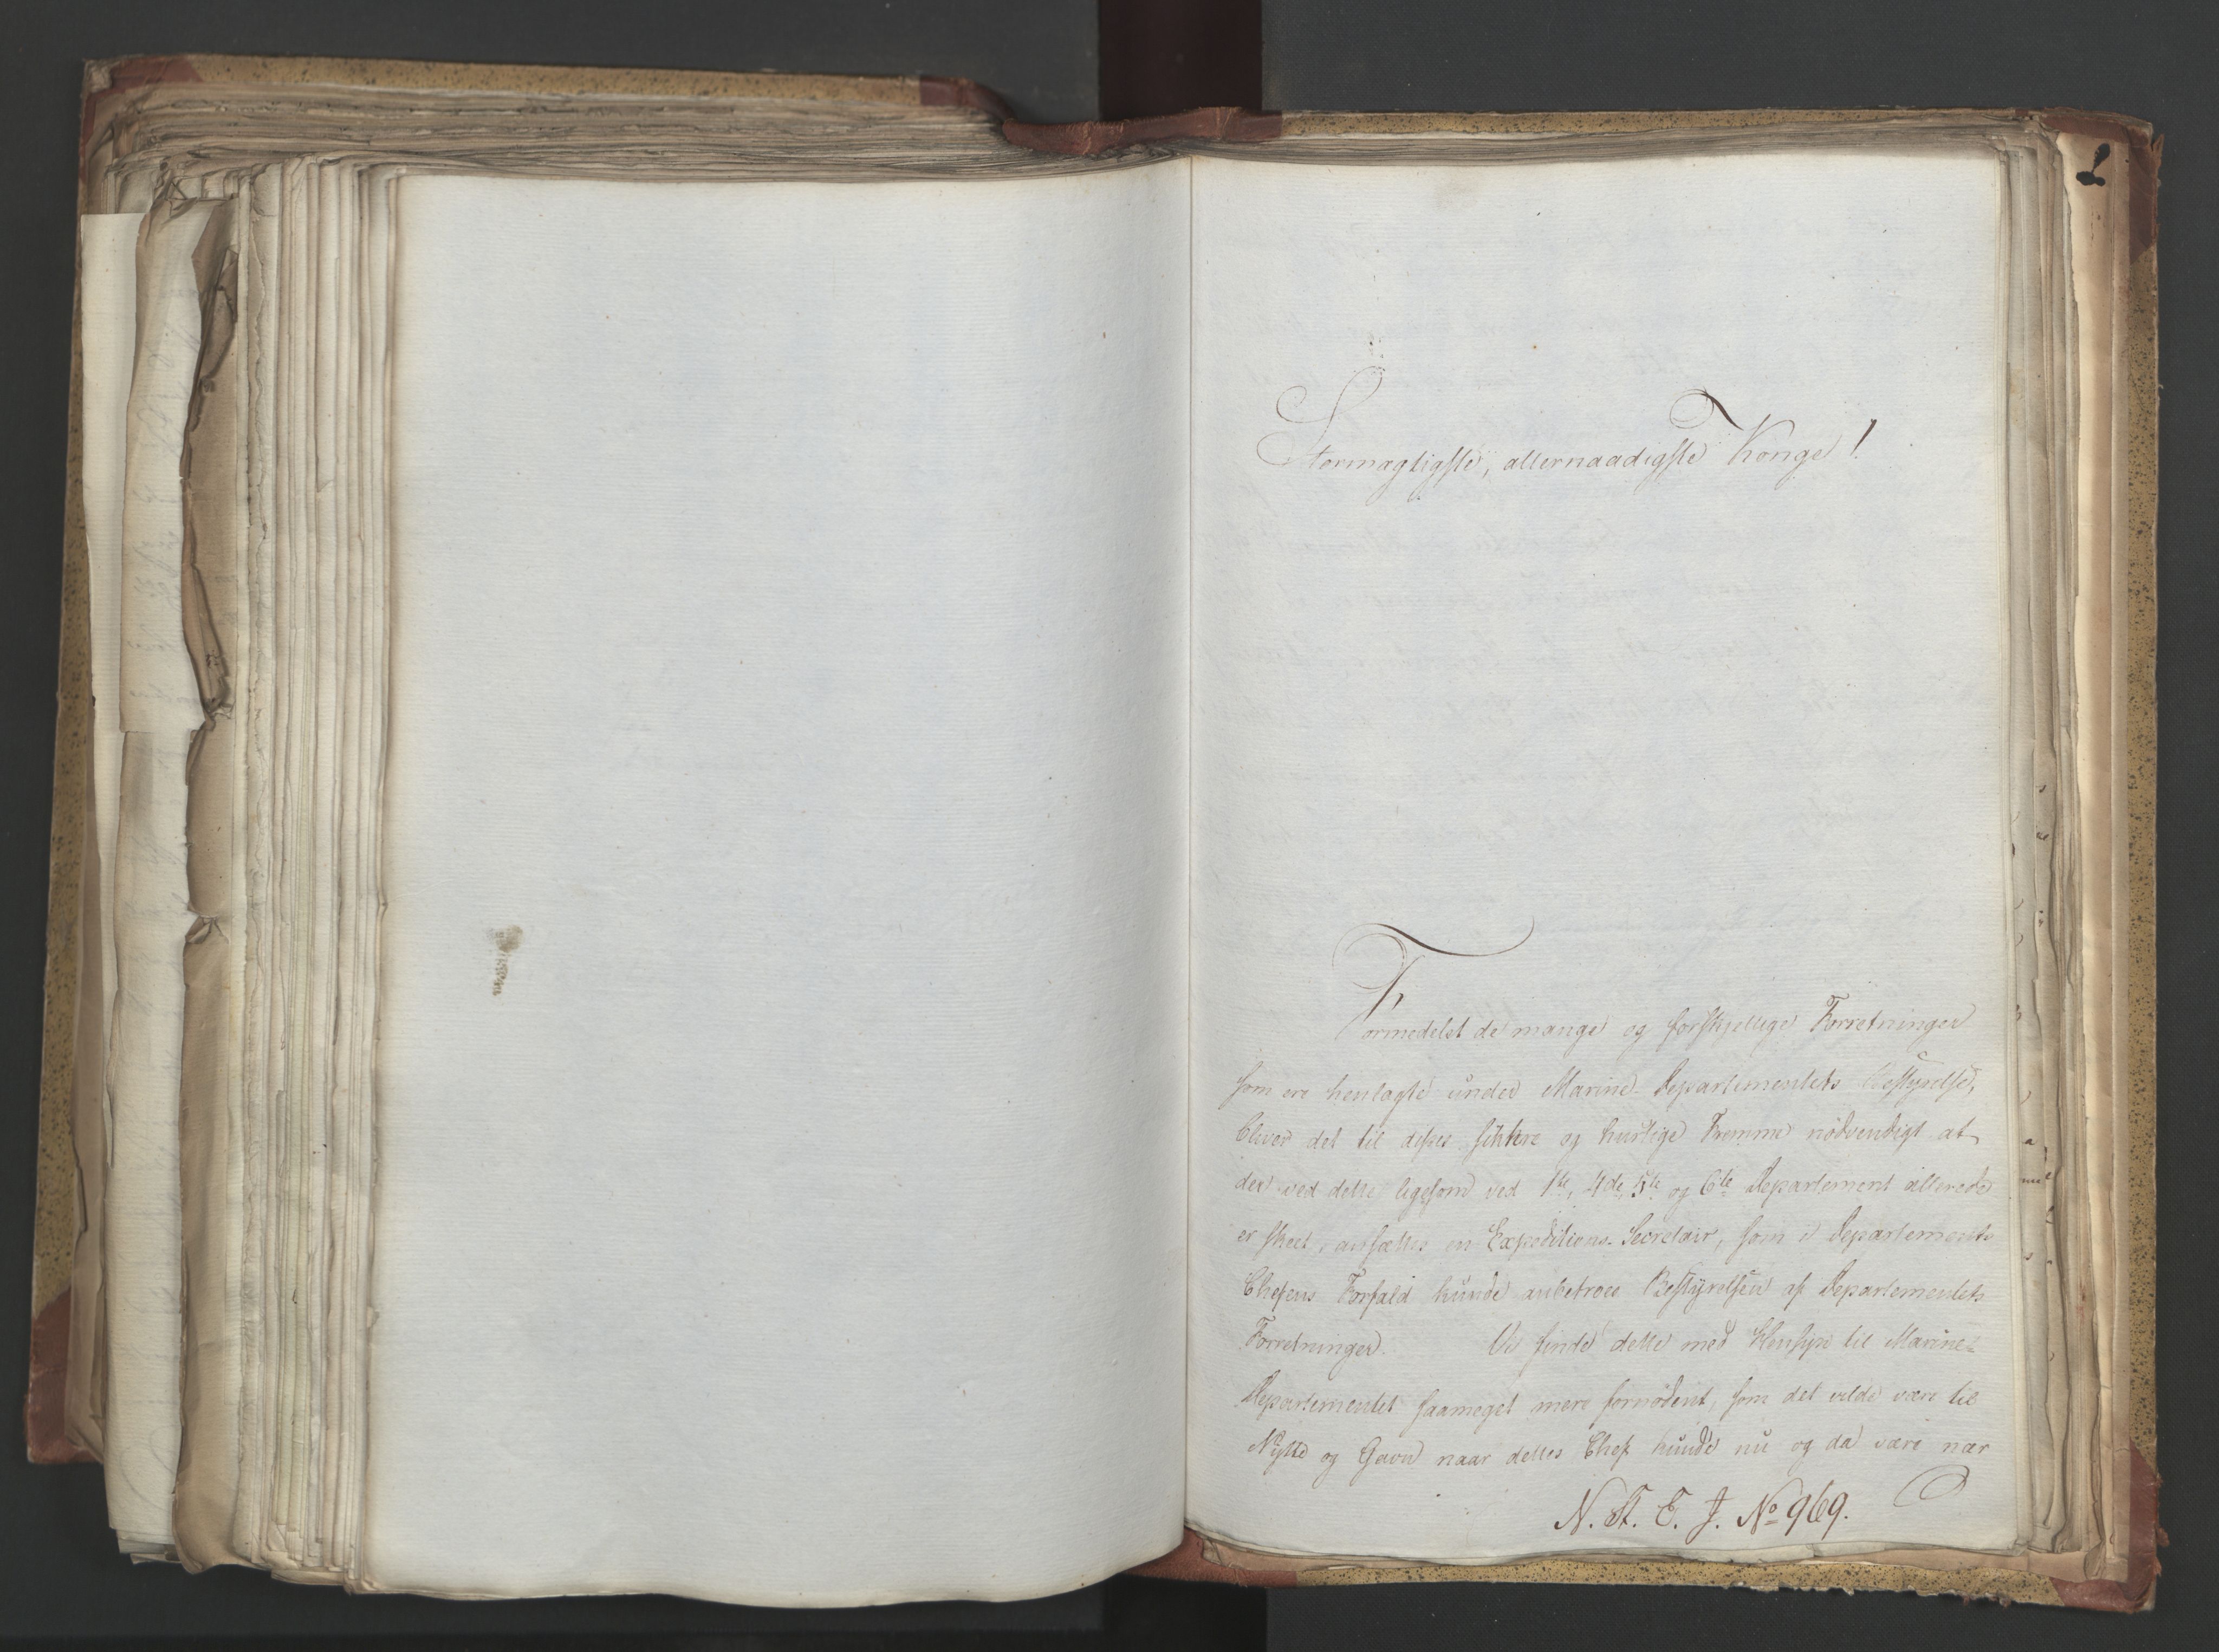 Stormægtigste, allernaadigste Konge!
Formedelst de mange og forskjellige Forretninger
som ere henlagte under Marine-Departementets Bestyrelse,
bliver det til disses sikkre og hurtige Fremme nødvendigt at
der ved dette ligesom ved 1ste, 4de, 5te og 6te Departement allerede
er skeet, ansættes en Expeditions-Secretair, som i Departements
Chefens Forfald kunde anbetroes Bestyrelsen af Departementets
Forretninger. Vi finde dette med Hensyn til Marine-
Departementet saameget mere fornødent, som det vilde være til
Nytte og Gavn naar dettes Chef kunde nu og da være nær
N. St. E. J. No 969.